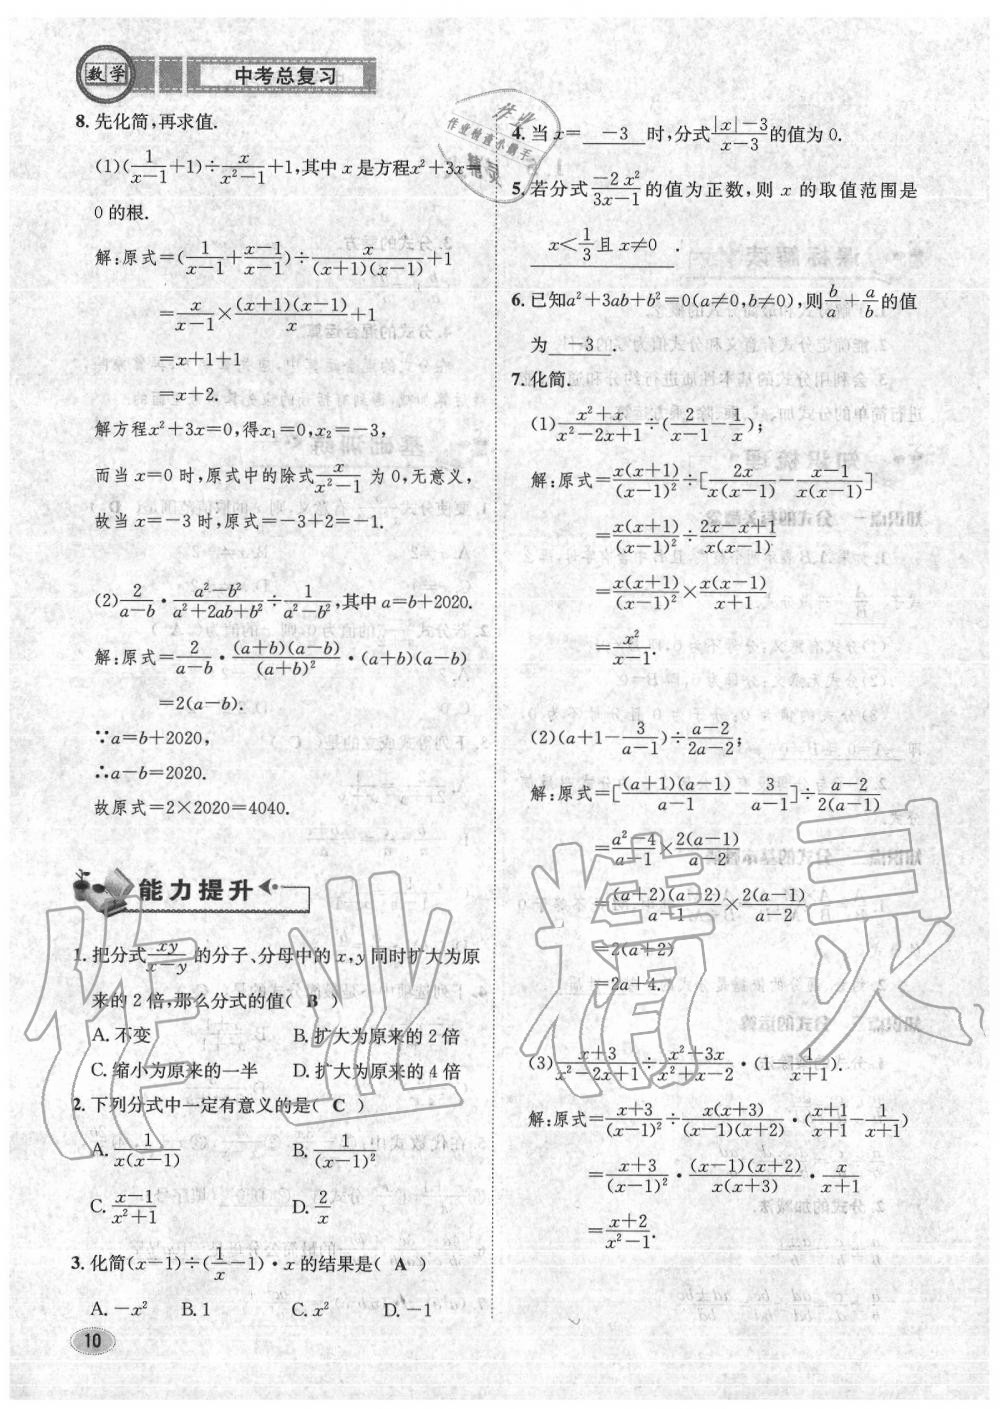 数学 中考总复习
8. 先化简,再求值.
(1)(1/(x-1)+1)÷x/(x²-1)+1,其中 x 是方程x²+3x=
0 的根.
解:原式=(1/(x-1)+(x-1)/(x-1))÷x/((x+1)(x-1))+1
=x/(x-1)×((x+1)(x-1))/x+1
=x+1+1
=x+2.
解方程x²+3x=0,得x₁=0,x₂=-3,
而当 x=0 时,原式中的除式x/(x²-1)为 0,无意义,
故当 x=-3 时,原式=-3+2=-1.
(2)2/(a-b)·(a²-b²)/(a²+2ab+b²)÷1/(a²-b²),其中 a=b+2020.
解:原式=2/(a-b)·((a+b)(a-b))/(a+b)²·(a+b)(a-b)
=2(a-b).
∵a=b+2020,
∴a-b=2020.
故原式=2×2020=4040.
能力提升
1. 把分式xy/(x-y)的分子、分母中的 x,y 同时扩大为原
来的 2 倍,那么分式的值( B )
A. 不变 B. 扩大为原来的 2 倍
C. 缩小为原来的一半 D. 扩大为原来的 4 倍
2. 下列分式中一定有意义的是( C )
A. 1/(x(x-1)) B. 1/(x-1)²
C. (x-1)/(x²+1) D. 2/x
3. 化简(x-1)÷(1/x-1)·x 的结果是( A )
A. -x² B. 1 C. x² D. -1
10
4. 当 x= -3 时,分式(|x|-3)/(x-3)的值为 0.
5. 若分式(-2x²)/(3x-1)的值为正数,则 x 的取值范围是
x<1/3且 x≠0 .
6. 已知a²+3ab+b²=0(a≠0,b≠0),则b/a+a/b的值
为 -3 .
7. 化简.
(1)(x²+x)/(x²-2x+1)÷(2/(x-1)-1/x);
解:原式=(x(x+1))/(x-1)²÷[2x/(x(x-1))-(x-1)/(x(x-1))]
=(x(x+1))/(x-1)²÷(2x-x+1)/(x(x-1))
=(x(x+1))/(x-1)²×(x(x-1))/(x+1)
=x²/(x-1).
(2)(a+1-3/(a-1))÷(a-2)/(2a-2);
解:原式=[((a+1)(a-1))/(a-1)-3/(a-1)]÷(a-2)/(2(a-1))
=(a²-4)/(a-1)×(2(a-1))/(a-2)
=((a+2)(a-2))/(a-1)×(2(a-1))/(a-2)
=2(a+2)
=2a+4.
(3)(x+3)/(x²-2x+1)÷(x²+3x)/(x²+x-2)·(1-1/(x+1)).
解:原式=(x+3)/(x-1)²÷(x(x+3))/((x-1)(x+2))·((x+1)/(x+1)-1/(x+1))
=(x+3)/(x-1)²·((x-1)(x+2))/(x(x+3))·x/(x+1)
=(x+2)/(x²-1).
作业精灵